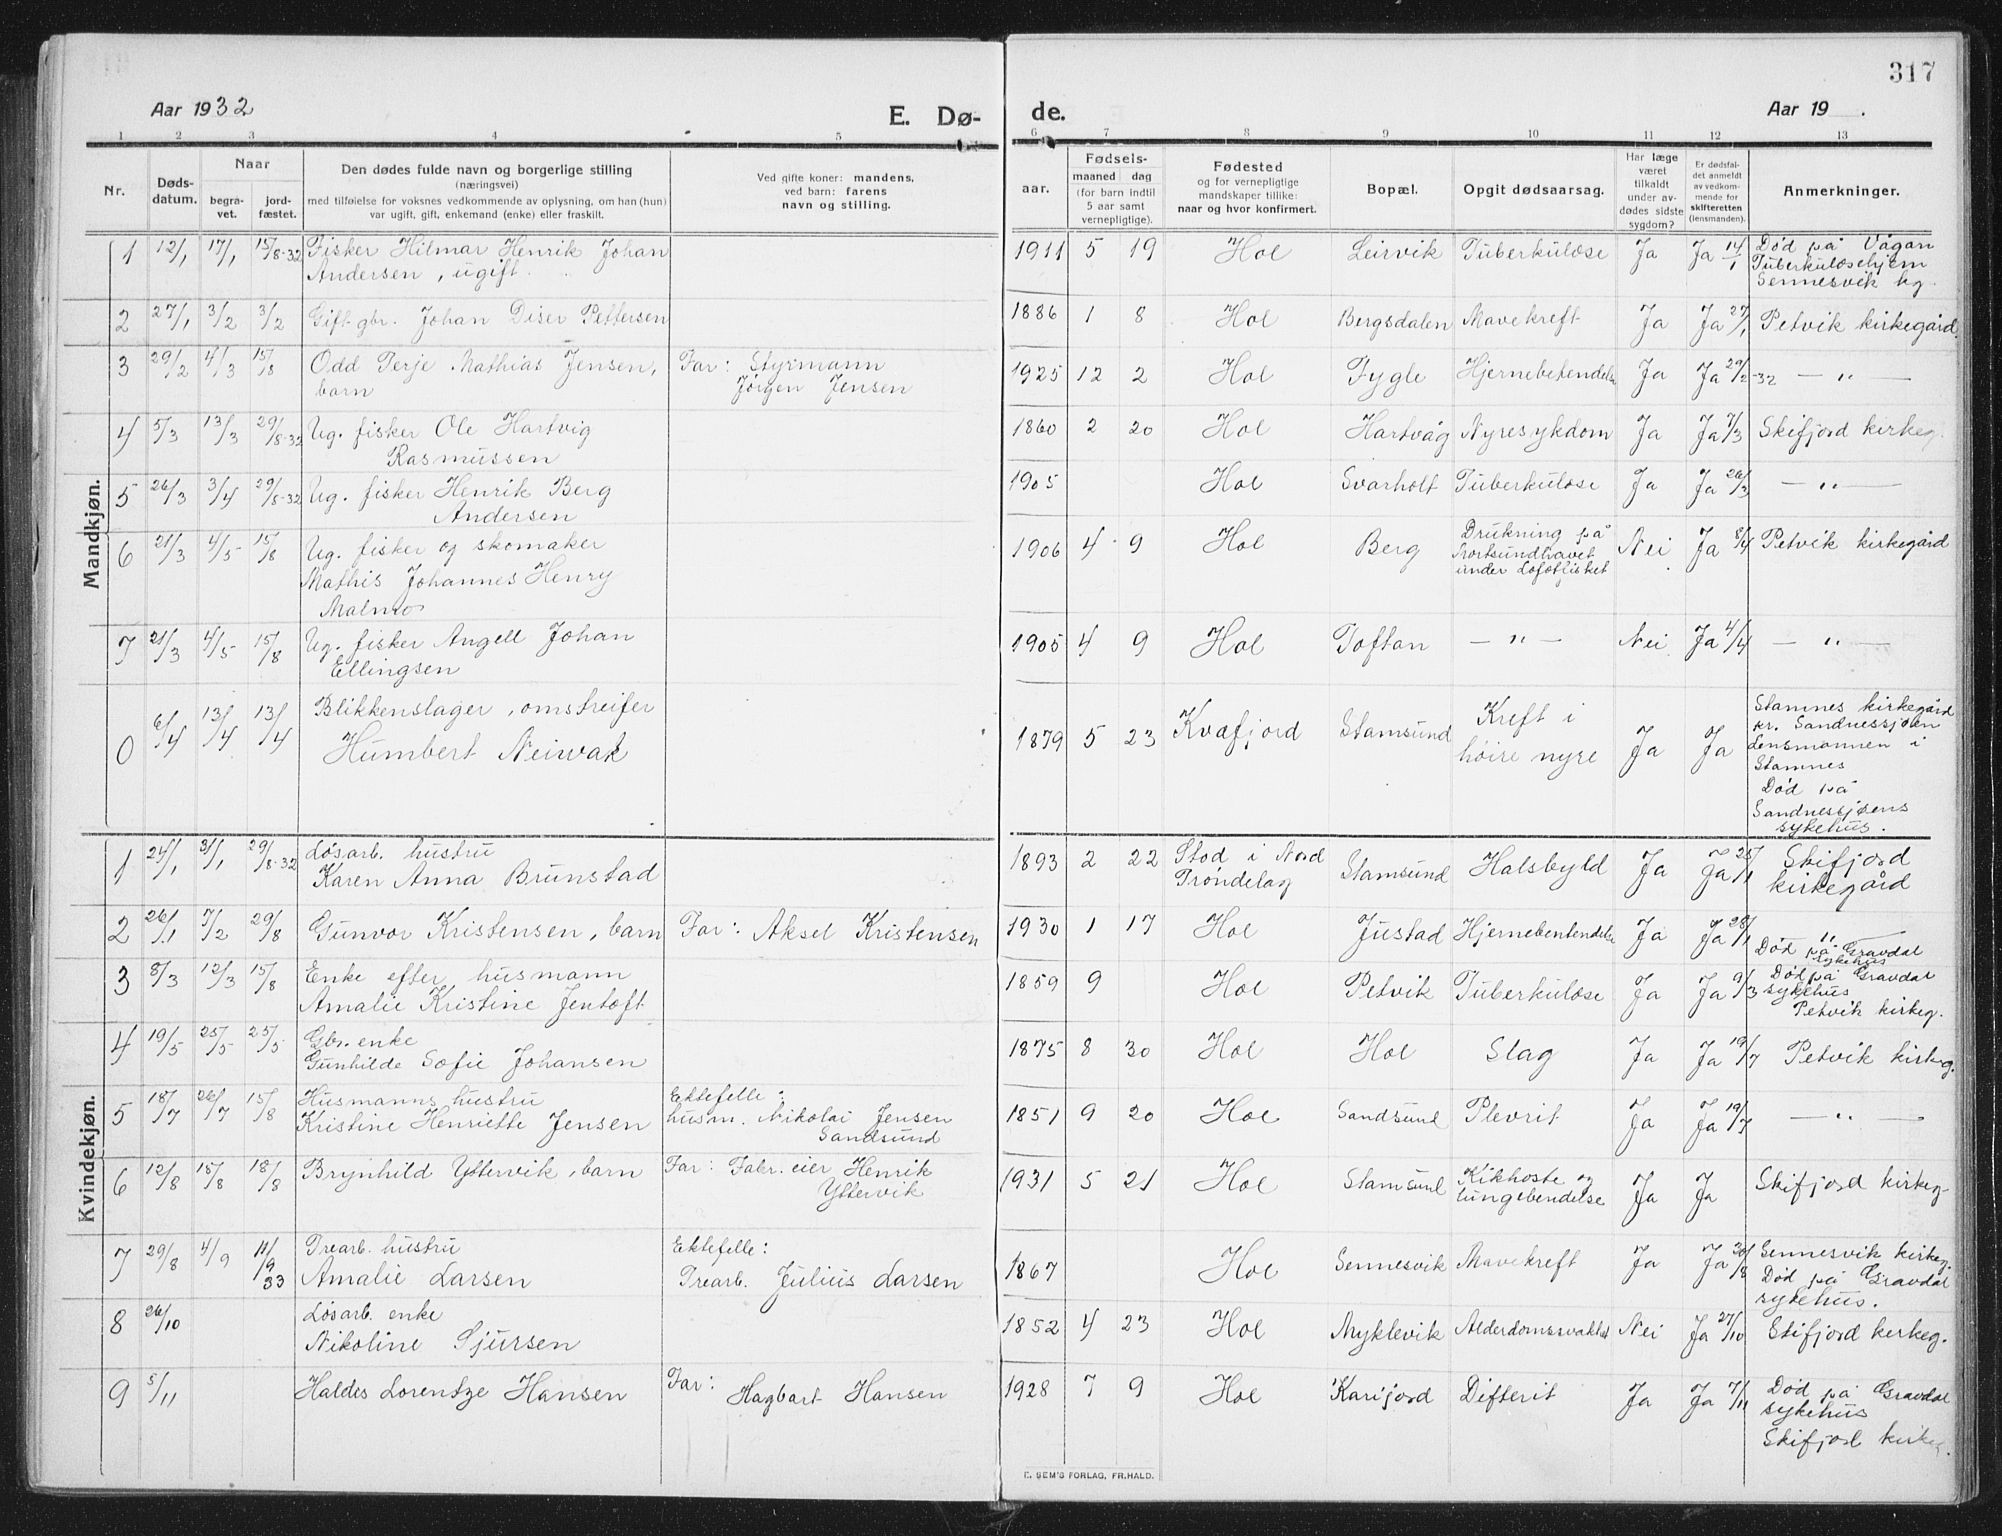 317
Aar 1932 E. Dø- de. Aar 19 .
1 2 3 4 5 6 7 8 9 10 11 12 13
Nr. Døds-datum. Naar begra-vet. jord-fæstet. Den dødes fulde navn og borgerlige stilling (næringsvei) med tilføielse for voksnes vedkommende av oplysning, om han (hun) var ugift, gift, enkemand (enke) eller fraskilt. Ved gifte koner: mandens, ved barn: farens navn og stilling. Fødsels- aar. maaned dag (for barn indtil 5 aar samt vernepligtige). Fødested og for vernepligtige mandskaper tillike: naar og hvor konfirmert. Bopæl. Opgit dødsaarsag. Har læge været tilkaldt under av-dødes sidste sygdom? Er dødsfal-det anmeldt av vedkom-mende for skifteretten (lensmanden). Anmerkninger.
Mandkjøn.
1 12/1 17/1 15/8-32 Fisker Hilmar Henrik Johan Andersen, ugift. 1911 5 19 Hol Leirvik Tuberkulose Ja Ja 14/1 Død på Vågan Tuberkulosehjem Sennesvik kg.
2 27/1 3/2 3/2 Gift gbr. Johan Diser Pettersen 1886 1 8 Hol Bergsdalen Mavekreft Ja Ja 27/1 Petvik kirkegård.
3 29/2 4/3 15/8 Odd Terje Mathias Jensen, barn Far: Styrmann Jørgen Jensen 1925 12 2 Hol Fygle Hjernebetendelse Ja Ja 29/2-32 — " —
4 5/3 13/3 29/8-32 Ug. fisker Ole Hartvig Rasmussen 1860 2 20 Hol Hartvåg Nyresykdom Ja Ja 7/3 Skifjord kirkeg.
5 26/3 3/4 29/8-32 Ug. fisker Henrik Berg Andersen 1905 Hol Svarholt Tuberkulose Ja Ja 26/3 — " —
6 21/3 4/5 15/8 Ug. fisker og skomaker Mathis Johannes Henry Malmo 1906 4 9 Hol Berg Drukning på Mortsundhavet under Lofotfisket Nei Ja 8/4 Petvik kirkegård
7 21/3 4/5 15/8 Ug. fisker Angell Johan Ellingsen 1905 4 9 Hol Toftan — " — Nei Ja 4/4 — " —
0 6/4 13/4 13/4 Blikkenslager, omstreifer Humbert Neiwak 1879 5 23 Kvæfjord Stamsund Kreft i høire nyre Ja Ja Stamnes kirkegård kr. Sandnessjøen Lensmannen i Stamnes Død på Sandnessjøens sykehus.
Kvindekjøn.
1 24/1 31/1 29/8-32 Løsarb. hustru Karen Anna Brunstad 1893 2 22 Stod i Nord Trøndelag Stamsund Halsbyld Ja Ja 25/1 Skifjord kirkegård
2 26/1 7/2 29/8 Gunvor Kristensen, barn Far: Aksel Kristensen 1930 1 17 Hol Justad Hjernebentendelse Ja Ja 28/1 " Død på Gravdal sykehus
3 8/3 12/3 15/8 Enke efter husmann Amalie Kristine Jentoft 1859 9 Hol Petvik Tuberkulose Ja Ja 9/3 Død på Gravdal sykehus Petvik kirkeg.
4 19/5 25/5 25/5 Gbr. enke Gunhilde Sofie Johansen 1875 8 30 Hol Hol Slag Ja Ja 19/7 Petvik kirkeg.
5 18/7 26/7 15/8 Husmanns hustru Kristine Henriette Jensen Ektefelle: husm. Nikolai Jensen Sandsund 1851 9 20 Hol Sandsund Plevrit Ja Ja 19/7 — " —
6 12/8 15/8 18/8 Brynhild Yttervik, barn Far: Fabr. eier Henrik Yttervik 1931 5 21 Hol Stamsund Kikhoste og lungebendelse Ja Ja Skifjord kirkeg.
7 29/8 4/9 11/9 33 Trearb. hustru Amalie Larsen Ektefelle: Trearb. Julius Larsen 1867 Hol Sennesvik Mavekreft Ja Ja 30/8 Sennesvik kirkeg. Død på Gravdal sykehus.
8 26/10 Løsarb. enke Nikoline Sjursen 1852 4 23 Hol Myklevik Alderdomssvakhet Nei Ja 27/10 Skifjord kirkeg.
9 5/11 Haldes Lorentze Hansen Far: Hagbart Hansen 1928 7 9 Hol Karifjord Difterit Ja Ja 7/11 Død på Gravdal sykehus Skifjord kirkeg.
E. SEM'S FORLAG, FR.HALD.